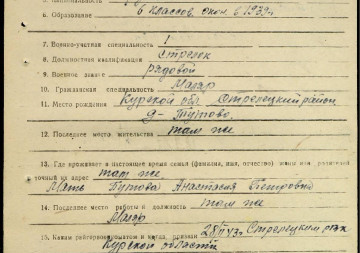 6. Образование 6 классов окон. в 1939 г.
7. Военно-учетная специальность 1
8. Должностная квалификация стрелок
9. Военное звание рядовой
10. Гражданская специальность Маляр
11. Место рождения Курской обл Стрелецкий район
д- Тутово.
12. Последнее место жительства там же
13. Где проживает в настоящее время семья (фамилия, имя, отчество) жены или родителей
точный их адрес там же
Мать Тутова Анастасия Петровна
14. Последнее место работы и должность там же
Маляр
15. Каким райгорвоенкоматом и когда призван 28/II 43 г. Стрелецким рвк
Курской области